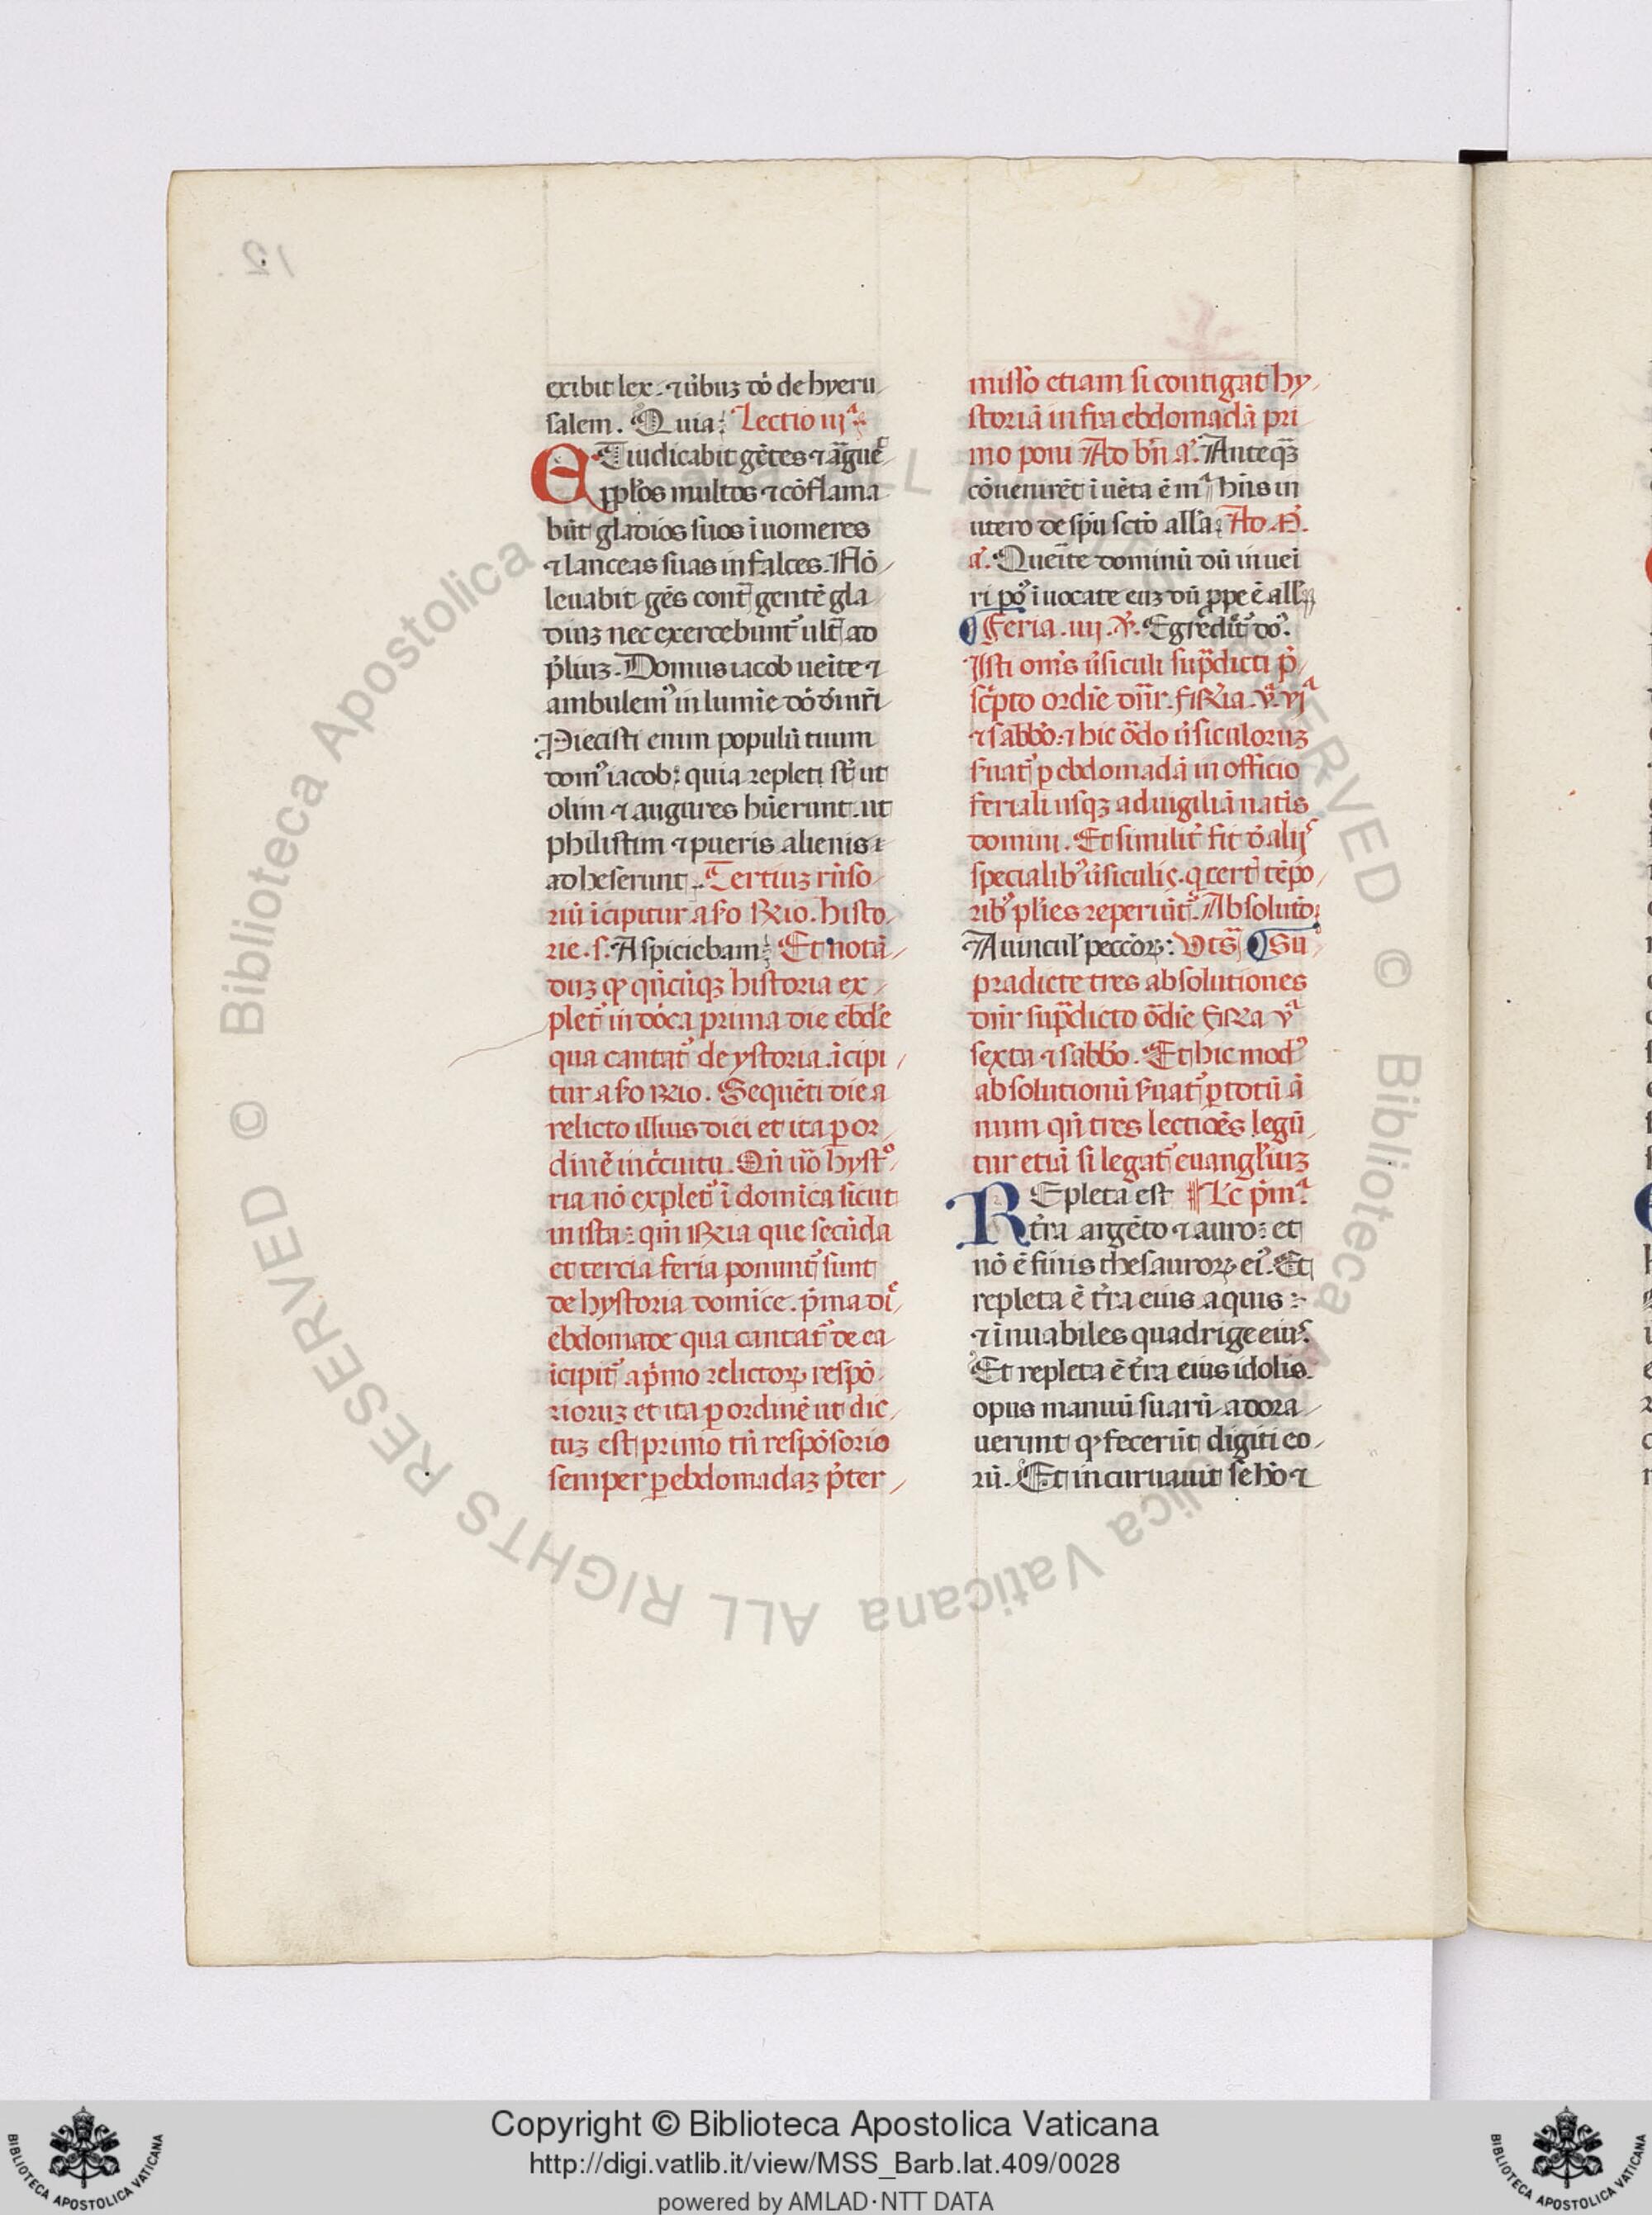 exibit lex. ⁊ ủbuꝫ dȯ de hyeru
salem. Quia: Lectio iijᵃ
Et iudicabit gētes ⁊ āguē
pplo̕s multos ⁊ cōflama
būt gladios suos ī uomeres
⁊ lanceas suas in falces. Nō
leuabit gēs cont̄ gentē gla
diuꝫ nec exercebunt᷑ ult̄ ad
p̄liuꝫ. Domus iacob ueīte ⁊
ambulem᷒ in lumīe dō
Piecisti enim populū tuum
dom᷒ iacob: quia repleti sūt ut
olim ⁊ augures hūerunt. ut
philistim ⁊ pueris alienis
adheserunt. Tertiuꝫ rn̄so
riū īcipitur a
rie. s. Aspiciebam: Et notā
duꝫ ꝙ qn̄cūqꝫ historia ex
plet᷑ in dōca prima die ebd̕e
qua cantat᷑ de ystoria. īcipi
tur a Sequēti die a
relicto illius diei et ita ꝑ or
dinē in c̄cuitu. Qn̄ uo̅ hysto
ria nō explet᷑ ī domīca sicut
in ista: que secūda
et tercia feria ponunt᷑ sunt
de hystoria domīce. p̄ma die
ebdomade qua cantat᷑ de ea
īcipit᷑ a p̄mo relictoꝝ respō
rioruꝫ et ita ꝑ ordinē ut dic
tuꝫ est primo tn̄ respōsorio
semper ꝑ ebdomadaꝫ p̄ter
misso etiam si contigat hy
storiā infra ebdomadā pri
mo poni Ad bn̄ a. Anteqꝫ
cōuenirēt īuēta ē mᵃ hn̄s in
utero de spū scto all̄a: Ad
a. Querite dominū dū inuei
ri pōt īuocate euꝫ dū ꝓpe ē all̄a
¶ Feria. iiij. ℣. Egredit᷑ do᷒.
Isti om̄s ūsiculi sup̄dicti p̄
sc̄pto ordīe dn̄r. feria. vᵃ. vjᵃ
⁊ sabbō. ⁊ hic ōdo ūsiculoruꝫ
suat᷑ ꝑ ebdomadā in officio
feriali usqꝫ ad uigiliā natīs
domini. Et similit̄ fit dō alijs
specialib᷒ ūsiculis. q cert̄ tēpo
rib᷒ pl̄ies reperiūt᷑. Absolutō:
A uincul̕ peccōꝝ: vt sᵃ ¶ Su
pradicte tres absolutiones
dn̄r sup̄dicto ōdīe feria vᵃ
sexta ⁊ sabbō. Et hic mod᷒
absolutionū suat᷑ ꝑ totū ā
num qn̄ tres lectiōes legū
tur etiā si legat᷑ euangl̕iuꝫ
Repleta est ¶ Lc p̄mᵃ
t̄ra argēto ⁊ auro: et
nō ē finis thesauroꝝ ei᷒. Et
repleta ē t̄ra eius aquis:
⁊ īnuabiles quadrige eius.
Et repleta ē t̄ra eius idolis.
opus manuū suarū adora
uerunt ꝙ fecerūt digiti eo
rū. Et incuruauit se hō ⁊
Copyright © Biblioteca Apostolica Vaticana
http://digi.vatlib.it/view/MSS_Barb.lat.409/0028
powered by AMLAD·NTT DATA